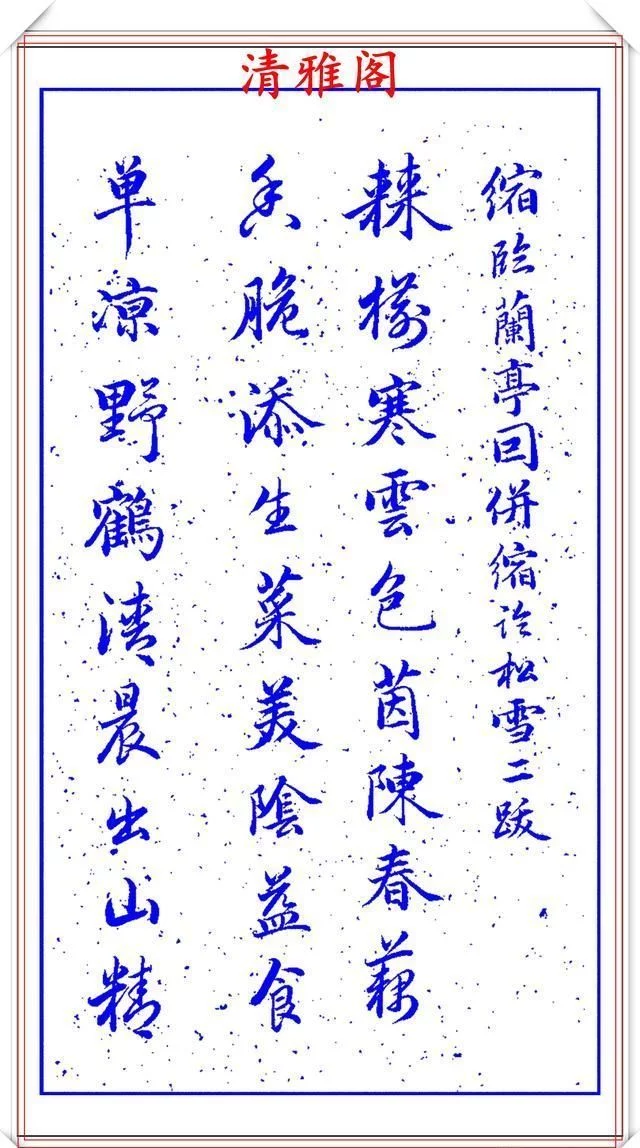 清雅阁
缩临蘭亭図併缩论松雪二跋
棘樹寒雲色茵陳春藕
香脆添生菜美陰益食
单凉野鶴清晨出山精